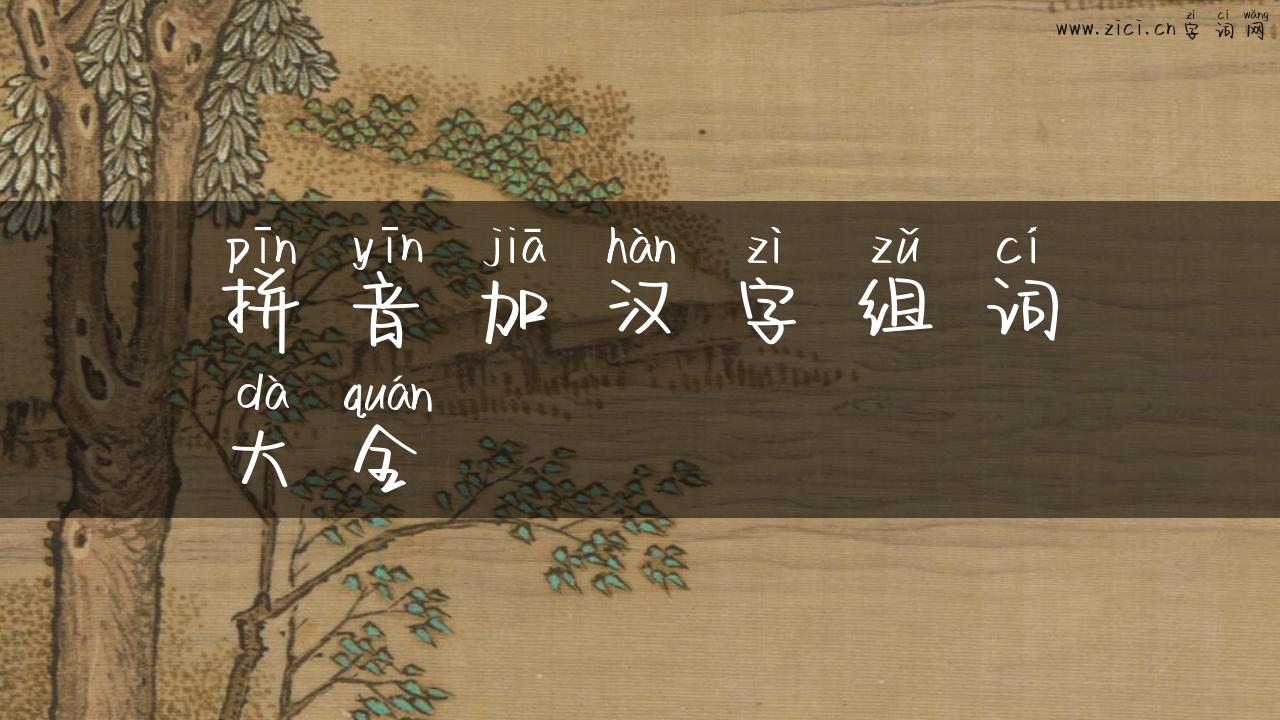 zì cí wǎng
www.zici.cn 字 词 网
pīn yīn jiā hàn zì zǔ cí
拼 音 加 汉 字 组 词
dà quán
大 全